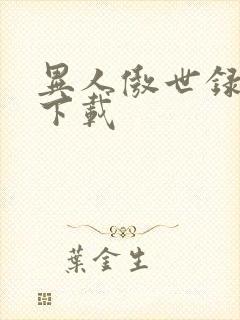 異人傲世錄
下載
葉金生